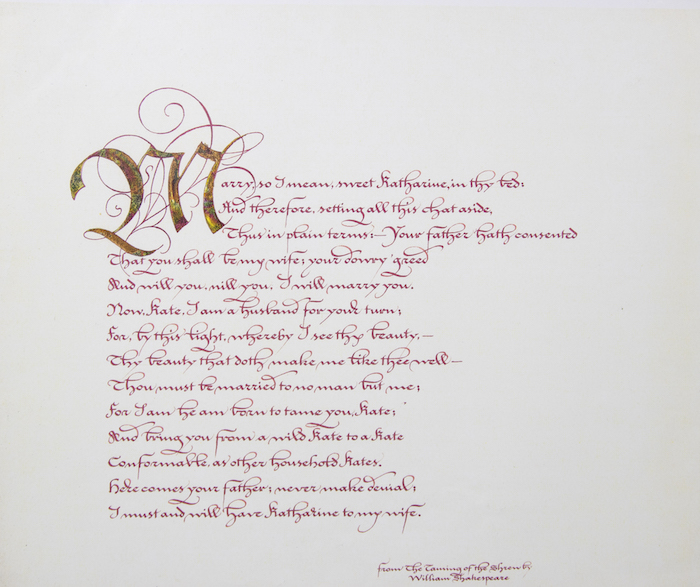 Marry, so I mean, sweet Katharine, in thy bed:
And therefore, setting all this chat aside,
Thus in plain terms:— Your father hath consented
That you shall be my wife; your dowry 'greed
And will you, nill you, I will marry you.
Now, Kate, I am a husband for your turn;
For, by this light, whereby I see thy beauty,—
Thy beauty that doth make me like thee well—
Thou must be married to no man but me;
For I am he am born to tame you, Kate;
And bring you from a wild Kate to a Kate
Conformable, as other household Kates.
Here comes your father; never make denial;
I must and will have Katharine to my wife.
from The Taming of the Shrew by
William Shakespeare